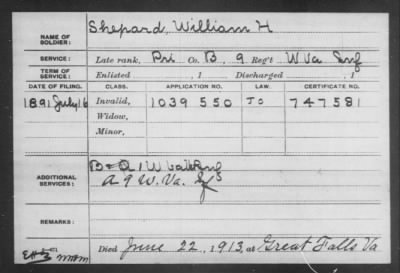 NAME OF SOLDIER: Shepard, William H
SERVICE: Late rank, Pri Co. B, 9 Reg't W. Va Inf
TERM OF SERVICE: Enlisted , 1 Discharged , 1
DATE OF FILING. CLASS. APPLICATION NO. LAW. CERTIFICATE NO.
1891 July 16 Invalid, 1039 550 J O 747581
Widow,
Minor,
ADDITIONAL SERVICES: B + A 1 W Va
A 9 W. Va. Inf
REMARKS:
Died June 22, 1913, at Great Falls Va